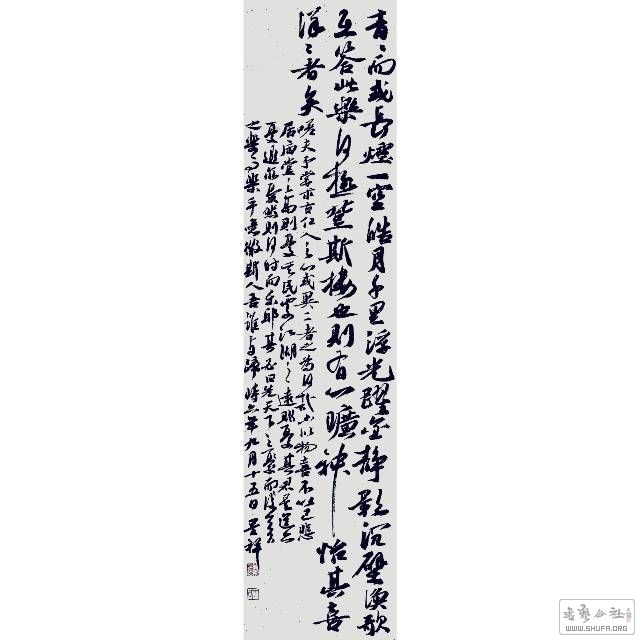 青〻而或长煙一空皓月千里浮光躍金静影沉璧渔歌
互答此樂何極登斯楼也则有心曠神怡其喜
洋〻者矣
嗟夫予嘗求古仁人之心或異二者之為何哉不以物喜不以己悲
居庙堂之高则憂其民處江湖之遠則憂其君是進亦
憂退亦憂然则何时而乐耶其必曰先天下之憂而
之樂而樂乎噫微斯人吾誰与歸時六年九月十五日 祥
書藝公社
WWW.SHUFA.ORG